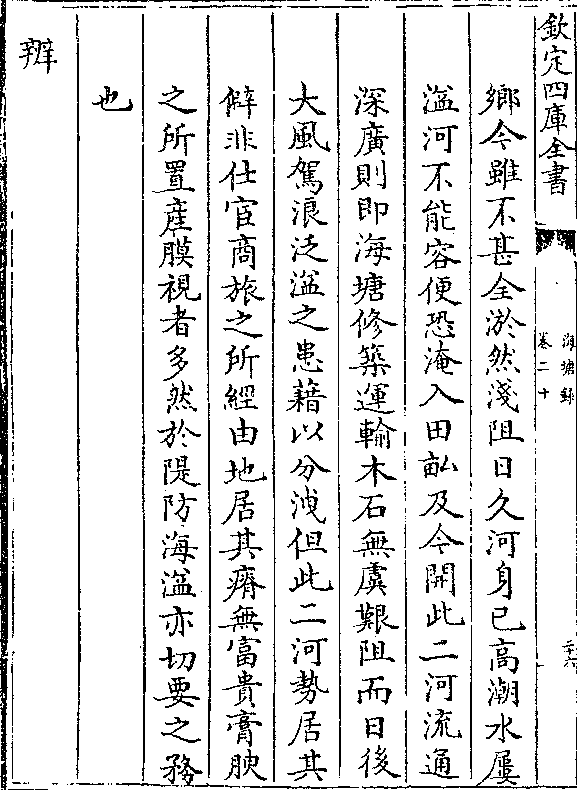 欽定四庫全書
海塘錄
卷二十
二十六
鄉今雖不甚全淤然淺阻日久河身已高潮水屢
溢河不能容便恐淹入田畝及今開此二河流通
深廣則即海塘修築運輸木石無虞艱阻而日後
大風駕浪泛溢之患藉以分洩但此二河勢居其
僻非仕宦商旅之所經由地居其瘠無富貴膏腴
之所置産膜視者多然於隄防海溢亦切要之務
也
辨